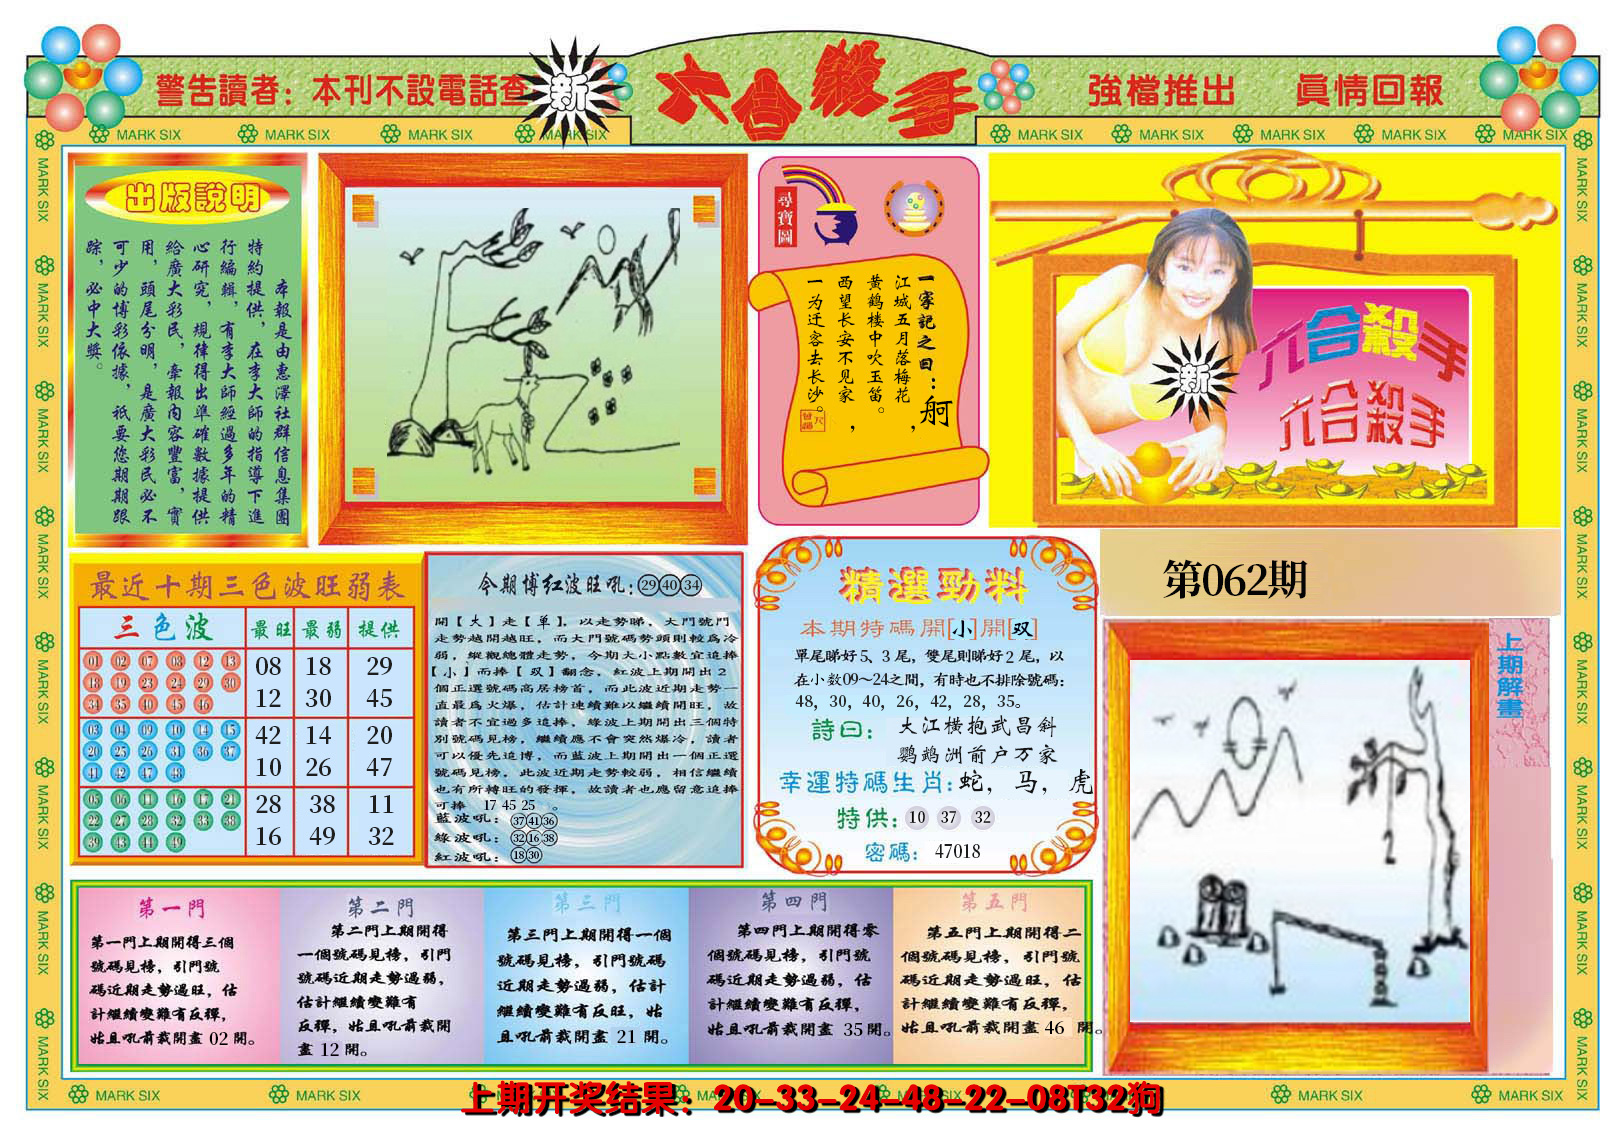 警告讀者：本刊不設電話查
新
六合殺手
強檔推出　真情回報
MARK SIX
出版說明
本報是由惠澤社群信息集團
特約提供，在李大師的指導下進
行編輯，有李大師經過多年的精
心研究，規律得出準確數據提供
給廣大彩民，牽報內容豐富，實
用，頭尾分明，是廣大彩民必不
可少的博彩依據，祇要您期期跟
踪，必中大獎。
尋寶圖
一家記之曰：舸
江城五月落梅花，
黄鹤楼中吹玉笛。
西望长安不见家，
一为迁客去长沙。
六合殺手
新
六合殺手
第062期
上期解畫
最近十期三色波旺弱表
三色波 最旺 最弱 提供
01 02 07 08 12 13
18 19 23 24 29 30
34 35 40 45 46
08 18 29
12 30 45
03 04 09 10 14 15
20 25 26 31 36 37
41 42 47 48
42 14 20
10 26 47
05 06 11 16 17 21
22 27 28 32 33 38
39 43 44 49
28 38 11
16 49 32
今期博红波旺吼：29 40 34
開【大】走【单】，以走勢睇，大門號門
走勢越開越旺，而大門號碼勢頭則較爲冷
弱，縱觀總體走勢，今期大小點數宜追捧
【小】而捧【双】翻念，紅波上期開出2
個正選號碼高居榜首，而此波近期走勢一
直最爲火爆，估計連續難以繼續開旺，故
讀者不宜過多追捧，綠波上期開出三個特
別號碼見榜，繼續應不會突然爆冷，讀者
可以優先追博，而蓝波上期開出一個正選
號碼見榜，此波近期走勢較弱，相信繼續
也有所轉旺的發揮，故讀者也應留意追捧
可捧 17 45 25 。
藍波吼：37 41 36
綠波吼：32 16 38
紅波吼：18 30
精選勁料
本期特碼開[小]開[双]
單尾睇好5、3尾，雙尾則睇好2尾，以
在小数09～24之間，有時也不排除號碼：
48, 30, 40, 26, 42, 28, 35。
詩曰：大江横抱武昌斜
鹦鹉洲前户万家
幸運特碼生肖：蛇，马，虎
特供：10 37 32
密碼：47018
第一門
第一門上期開得三個
號碼見榜，引門號
碼近期走勢過旺，估
計繼續變難有反彈，
姑且吼前裁開盡 02 開。
第二門
第二門上期開得
一個號碼見榜，引門
號碼近期走勢過弱，
估計繼續變難有
反彈，姑且吼前裁開
盡 12 開。
第三門
第三門上期開得一個
號碼見榜，引門號碼
近期走勢過弱，估計
繼續變難有反旺，姑
且吼前裁開盡 21 開。
第四門
第四門上期開得零
個號碼見榜，引門號
碼近期走勢過弱，估
計繼續變難有反彈，
姑且吼前裁開盡 35 開。
第五門
第五門上期開得二
個號碼見榜，引門號
碼近期走勢過旺，估
計繼續變難有反彈，
姑且吼前裁開盡 46 開。
上期开奖结果：20-33-24-48-22-08T32狗